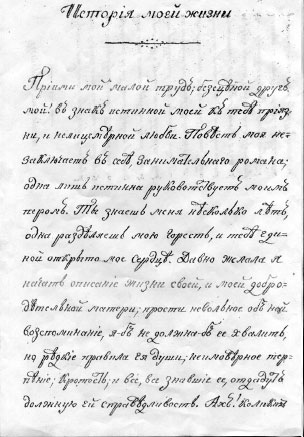 Исторія моей жизни
Пріими мой малой трудъ; безцѣнной другъ
мой! въ знакъ истинной моей къ тебѣ пріяз-
ни, и нелицемѣрной любви. Повѣсть моя не-
заключаетъ въ себѣ, занимательнаго романа;
одна лишь истина руководствуетъ моимъ
перомъ. Ты знаешь меня нѣсколько лѣтъ,
одна раздѣляешь мою горесть, и тебѣ еди-
ной открыто мое сердце. Давно желала я
начать описаніе жизни своей, и моей добро-
дѣтельной матери; прости невольное объ ней
воспоминаніе, я-бъ не должна-бъ ее хвалить,
но рѣдкіе правила ея души; неимовѣрное тер-
пѣніе; кротость; и все, все знавшіе ея, отдадутъ
должную ей справедливость. Ахъ!